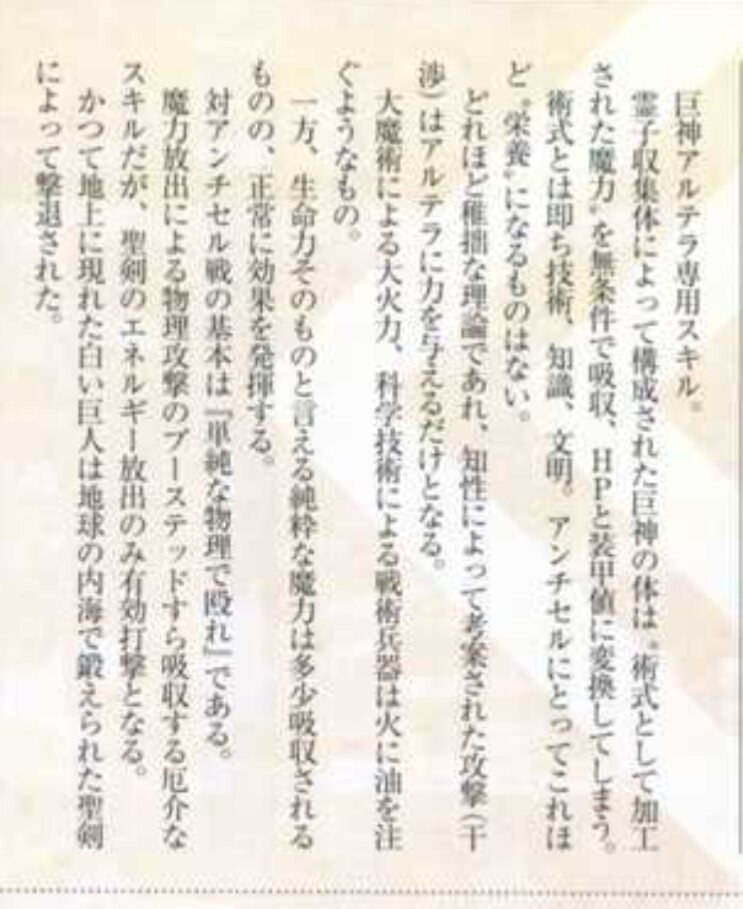 巨神アルテラ専用スキル。
霊子収集体によって構成された巨神の体は〝術式として加工
された魔力〟を無条件で吸収、HPと装甲値に変換してしまう。
術式とは即ち技術、知識、文明。アンチセルにとってこれほ
ど〝栄養〟になるものはない。
どれほど稚拙な理論であれ、知性によって考案された攻撃(干
渉)はアルテラに力を与えるだけとなる。
大魔術による大火力、科学技術による戦術兵器は火に油を注
ぐようなもの。
一方、生命力そのものと言える純粋な魔力は多少吸収される
ものの、正常に効果を発揮する。
対アンチセル戦の基本は『単純な物理で殴れ』である。
魔力放出による物理攻撃のブーステッドすら吸収する厄介な
スキルだが、聖剣のエネルギー放出のみ有効打撃となる。
かつて地上に現れた白い巨人は地球の内海で鍛えられた聖剣
によって撃退された。